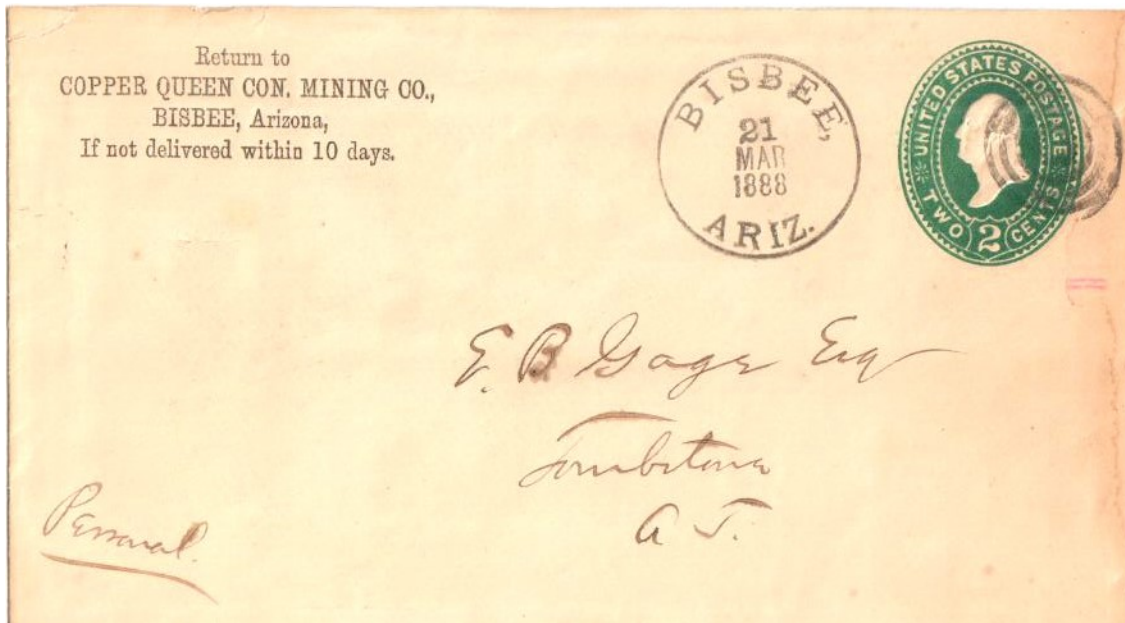 Return to
COPPER QUEEN CON. MINING CO.,
BISBEE, Arizona,
If not delivered within 10 days.
BISBEE,
21
MAR
1888
ARIZ.
UNITED STATES POSTAGE
TWO 2 CENTS
E. B Gage Esq
Tombstone
A T.
Personal.